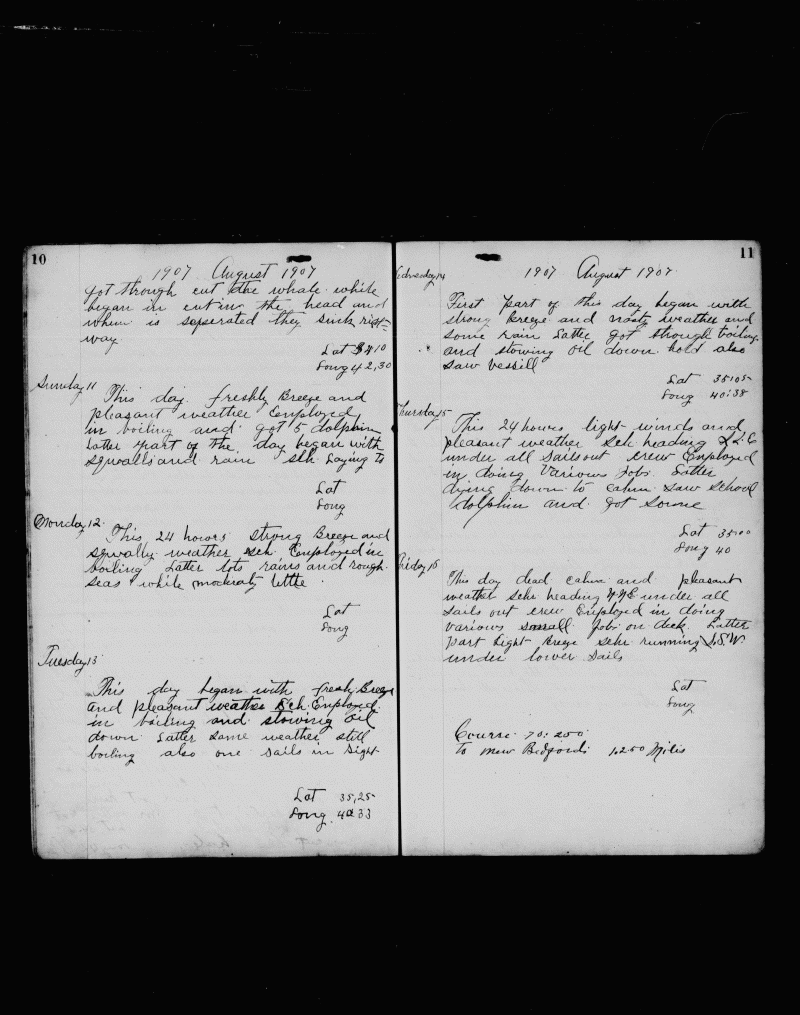 10
1907 August 1907
got through cut the whale while
began in cuting the head and
when is seperated they sink right
way
Lat 34 10
Long 42,30
Sunday 11
This day freshly Breeze and
pleasant weather Employed
in boiling and got 5 dolphin
latter part of the day began with
squalls and rain sch Laying to
Lat
Long
Monday 12
This 24 hours strong Breeze and
squally weather sch. Employed in
boiling Latter lots rains and rough
seas while moderatly little
Lat
Long
Tuesday 13
This day began with fresh Breeze
and pleasant weather Sch. Employed
in boiling and stowing oil
down Latter same weather still
boiling also one sails in sight
Lat 35,25
Long 40 33
11
Wednesday 14
1907 August 1907
First part of this day began with
strong Breeze and nasty weather and
some rain Latter got through boiling
and stowing oil down hold also
saw vessill
Lat 35:05
Long 40:38
Thursday 15
This 24 hours light winds and
pleasant weather sch heading S.S.E
under all sails out crew Employed
in doing Various Jobs Latter
dying down to calm saw school
dolphin and got some
Lat 35:00
Long 40
Friday 16
This day dead calm and pleasant
weather schr heading NNE under all
sails out crew Employed in doing
various small Jobs on deck. Latter
part Light Breeze schr running S.S.W.
under lower sails
Lat
Long
Course 70:250
To New Bedford: 1.250 Miles